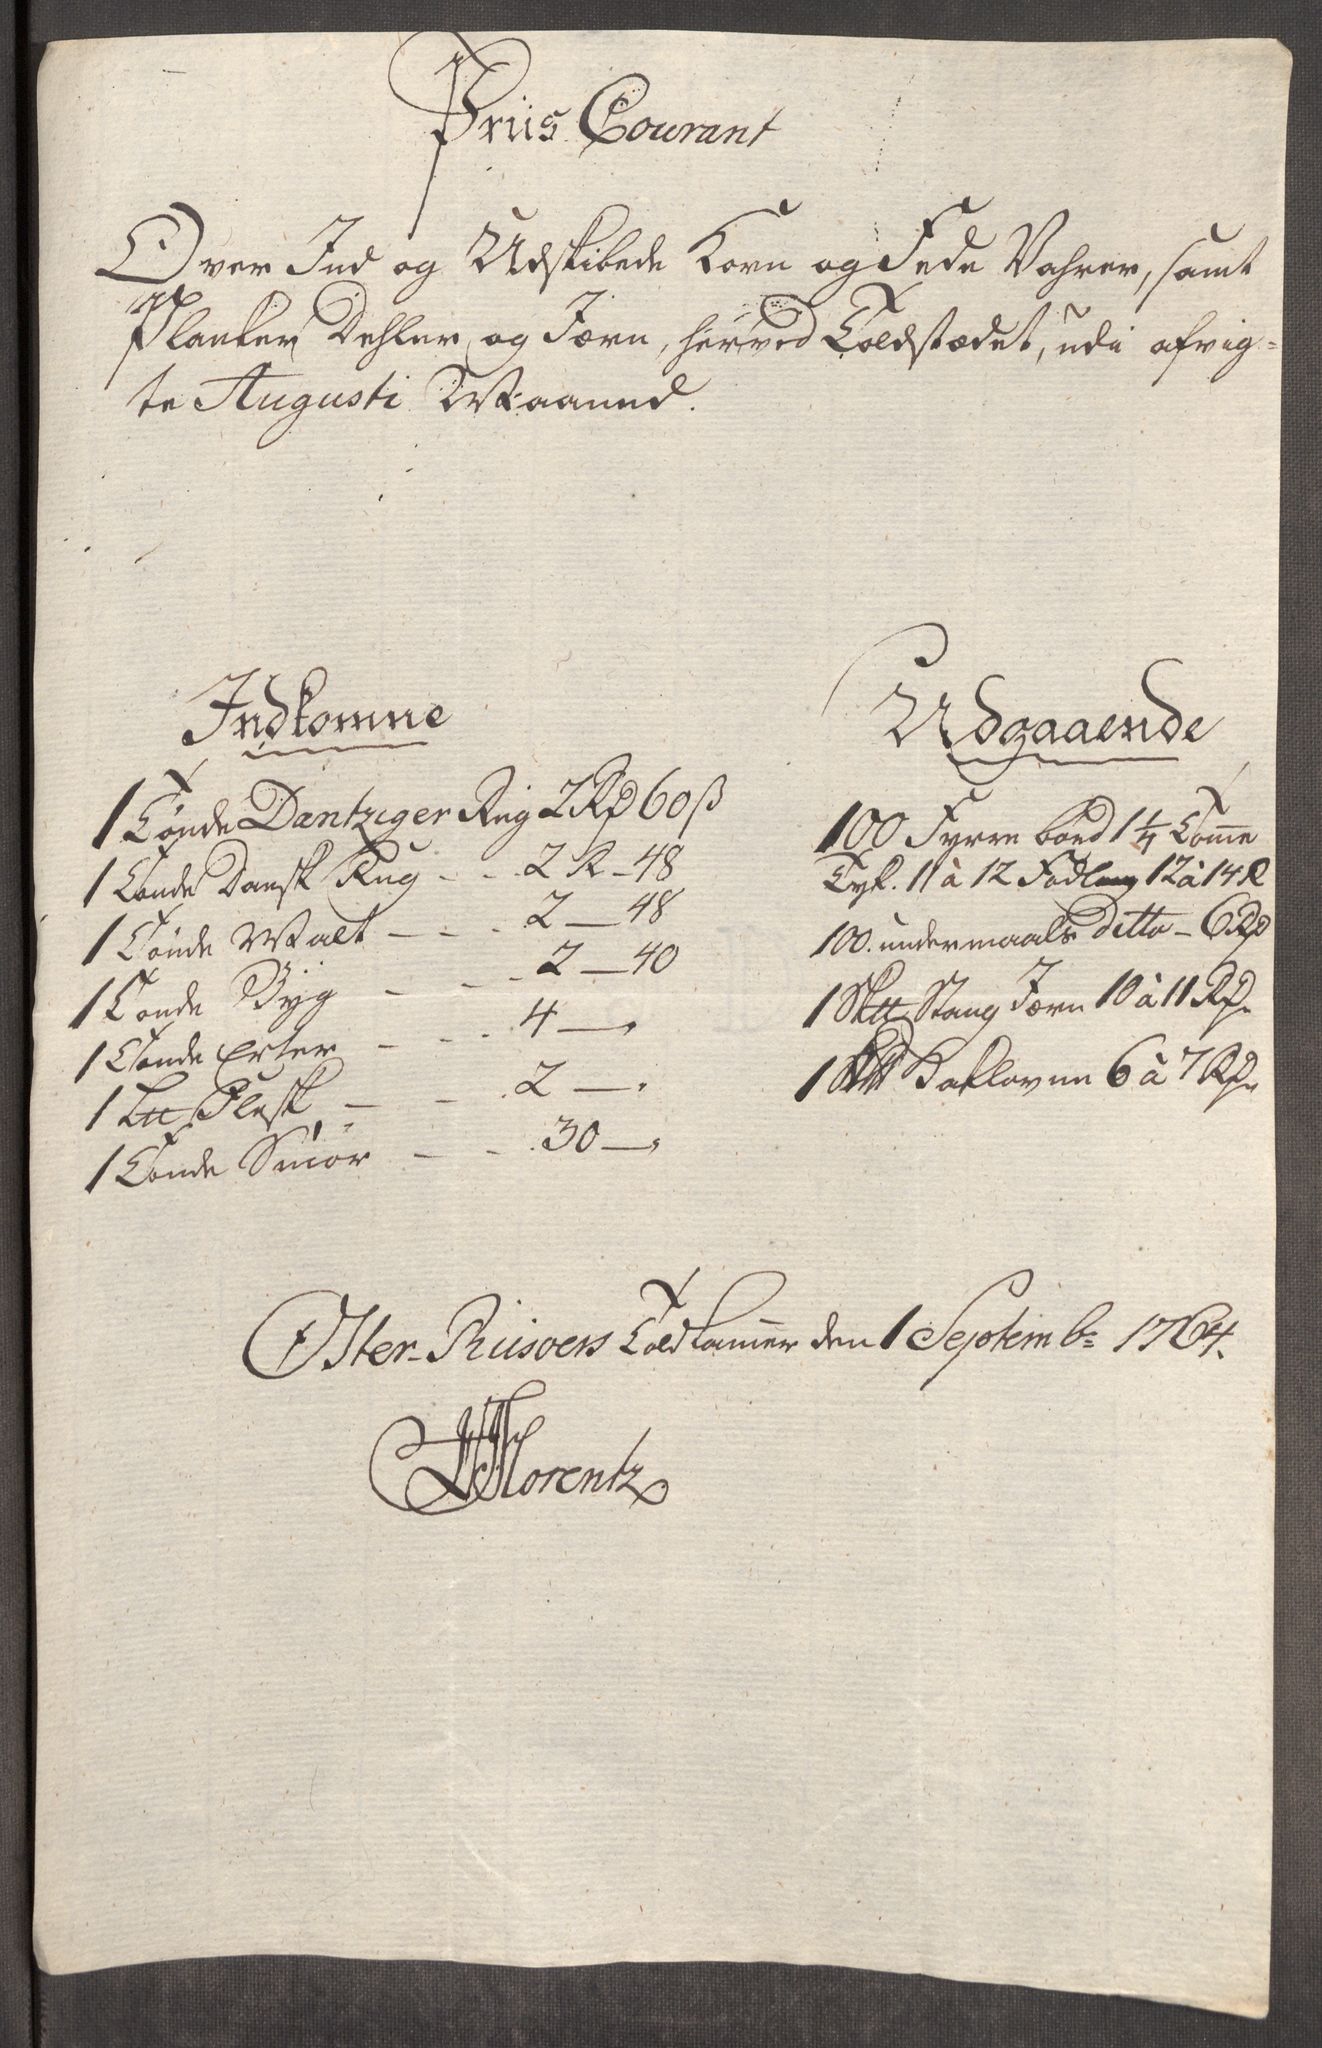 Priis Courant
Over Ind og Udskibede Korn og Fede Vahrer, samt
Planker Dehler og Jern, herved Toldstædet, udi afvig-
te Augusti Maaned.
Indkomne
1 Tønde Dantziger Rug 2 Rd 60 ß
1 Tønde Dansk Rug - - 2 R - 48
1 Tønde Malt - - - 2 - 48
1 Tønde Byg - - - 2 - 40
1 Tønde Erter - - - 4 - "
1 L℔ Flesk - - - 2 - "
1 Tønde Smør - - - 30 - "
Udgaaende
100 Fyrre bord 1 1/4 Tomme
Tyk. 11 à 12 Fod lang 12 à 14 R
100. undermaals ditto - 6 Rd
1 Sk℔ Stang Jern 10 à 11 Rd.
1 Sk℔ Kaklovne 6 à 7 Rd.
Oster-Riisoers Toldkamer den 1 Septembr 1764.
Lorentz